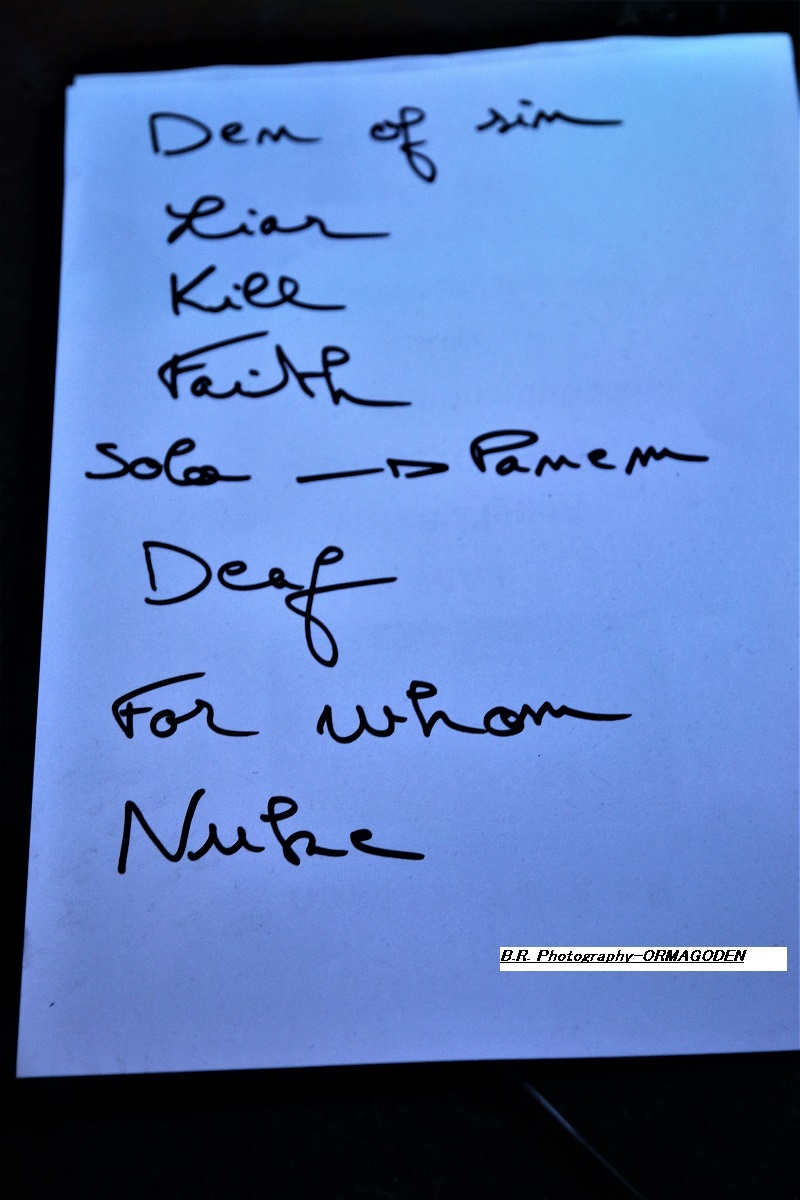 Den of sin
Liar
Kill
Faith
Solo → Panem
Deaf
For whom
Nuke
B.R. Photography-ORMAGODEN